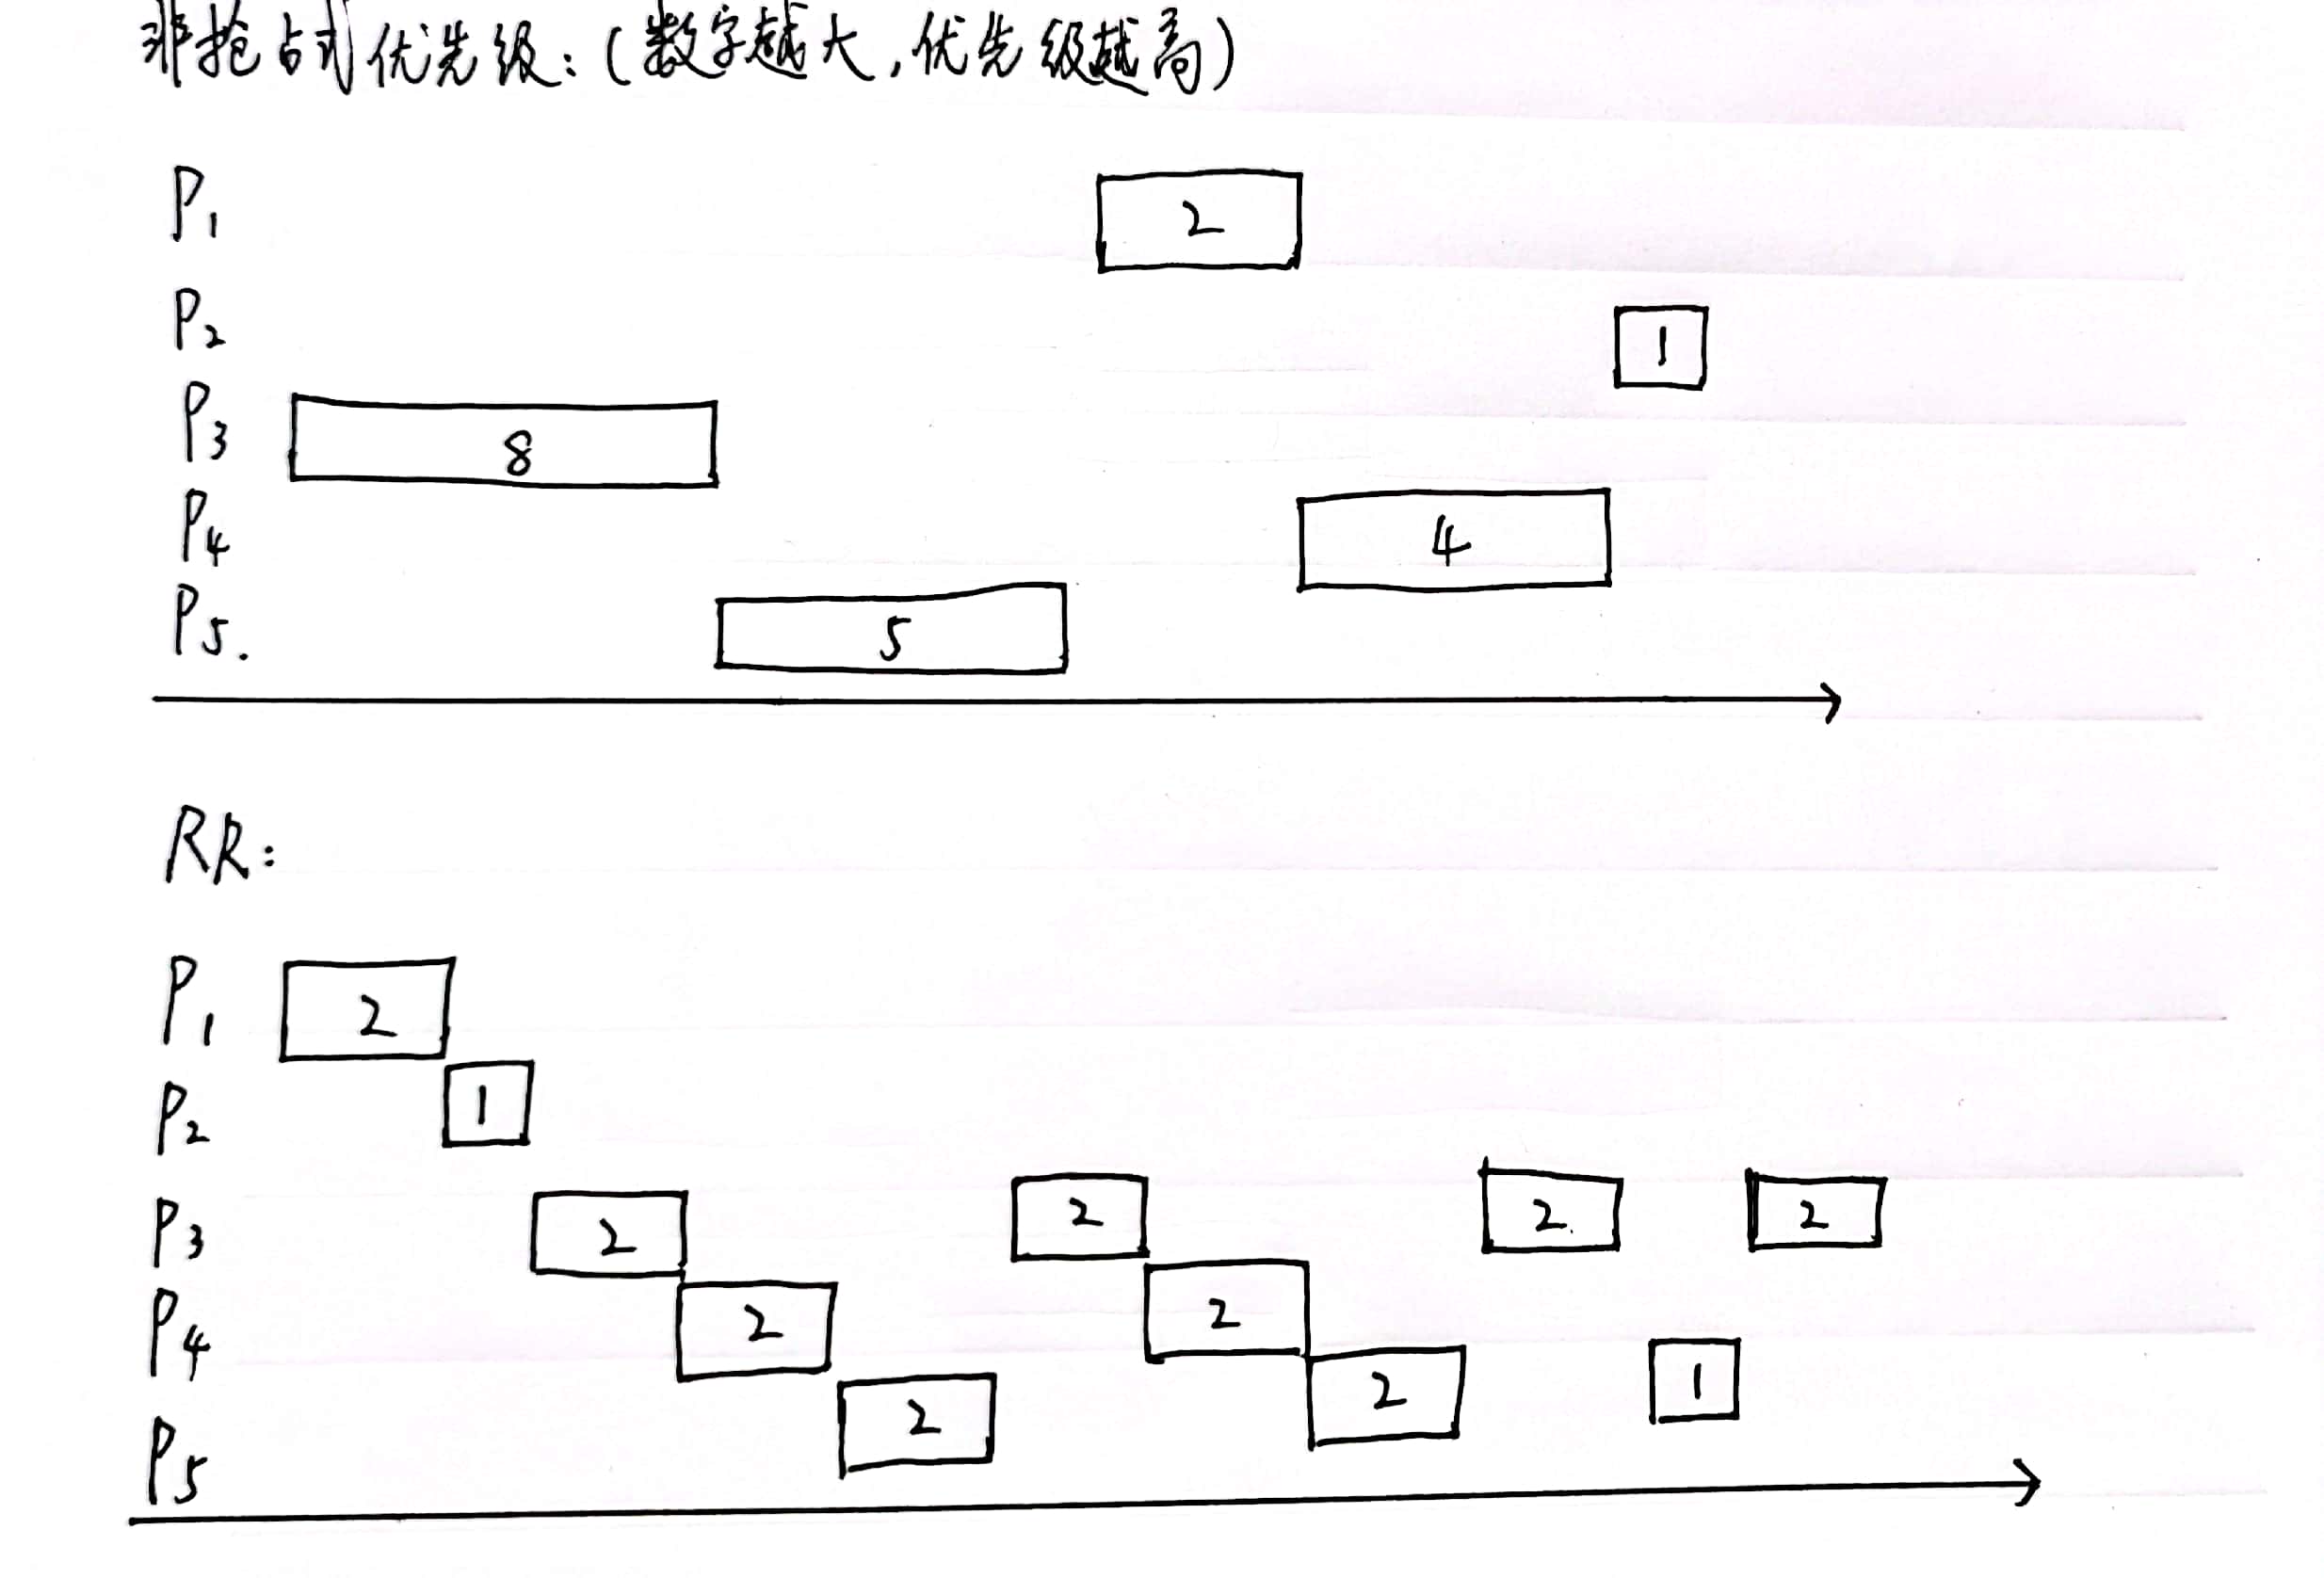 非抢占式优先级:(数字越大,优先级越高)
P1 2
P2 1
P3 8
P4 4
P5. 5
RR:
P1 2
P2 1
P3 2 2 2. 2
P4 2 2 1
P5 2 2